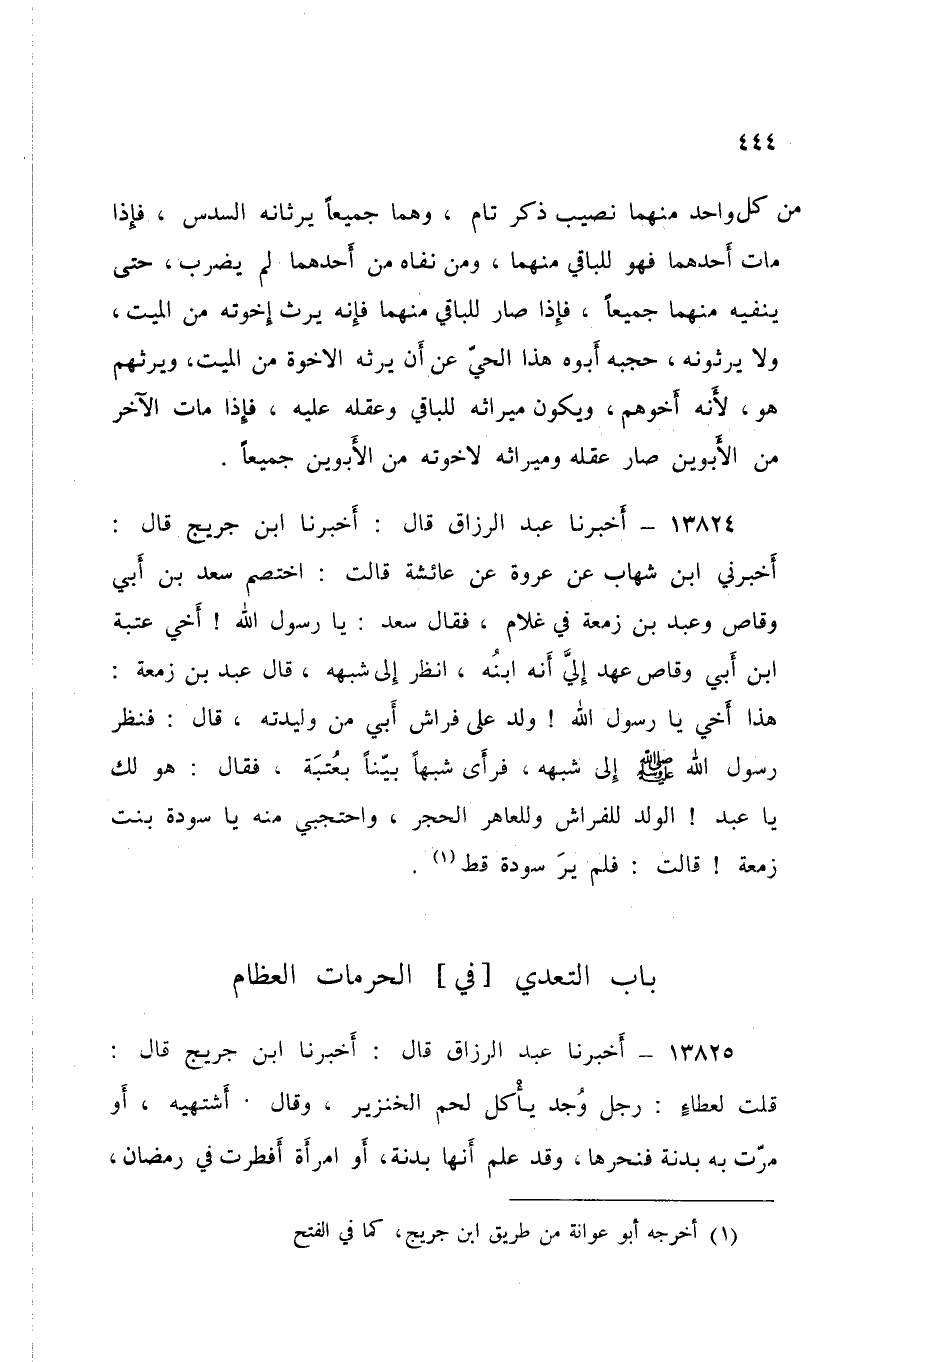 ٤٤٤
من كل واحد منهما نصيب ذكر تام ، وهما جميعاً يرثانه السدس ، فإذا
مات أحدهما فهو للباقي منهما ، ومن نفاه من أحدهما لم يضرب ، حتى
ينفيه منهما جميعاً ، فإذا صار للباقي منهما فإنه يرث إخوته من الميت ،
ولا يرثونه ، حجبه أبوه هذا الحيّ عن أن يرثه الاخوة من الميت ، ويرثهم
هو ، لأنه أخوهم ، ويكون ميراثه للباقي وعقله عليه ، فإذا مات الآخر
من الأبوين صار عقله وميراثه لاخوته من الأبوين جميعاً .
١٣٨٢٤ – أخبرنا عبد الرزاق قال : أخبرنا ابن جريج قال :
أخبرني ابن شهاب عن عروة عن عائشة قالت : اختصم سعد بن أبي
وقاص وعبد بن زمعة في غلام ، فقال سعد : يا رسول الله ! أخي عتبة
ابن أبي وقاص عهد إليَّ أنه ابنُه ، انظر إلى شبهه ، قال عبد بن زمعة :
هذا أخي يا رسول الله ! ولد على فراش أبي من وليدته ، قال : فنظر
رسول الله ﷺ إلى شبهه ، فرأى شبهاً بيّناً بعُتبَة ، فقال : هو لك
يا عبد ! الولد للفراش وللعاهر الحجر ، واحتجبي منه يا سودة بنت
زمعة ! قالت : فلم يرَ سودة قط (١) .
باب التعدي [في] الحرمات العظام
١٣٨٢٥ – أخبرنا عبد الرزاق قال : أخبرنا ابن جريج قال :
قلت لعطاءٍ : رجل وُجد يأكل لحم الخنزير ، وقال · أشتهيه ، أو
مرّت به بدنة فنحرها ، وقد علم أنها بدنة ، أو امرأة أفطرت في رمضان ،
(١) أخرجه أبو عوانة من طريق ابن جريج ، كما في الفتح